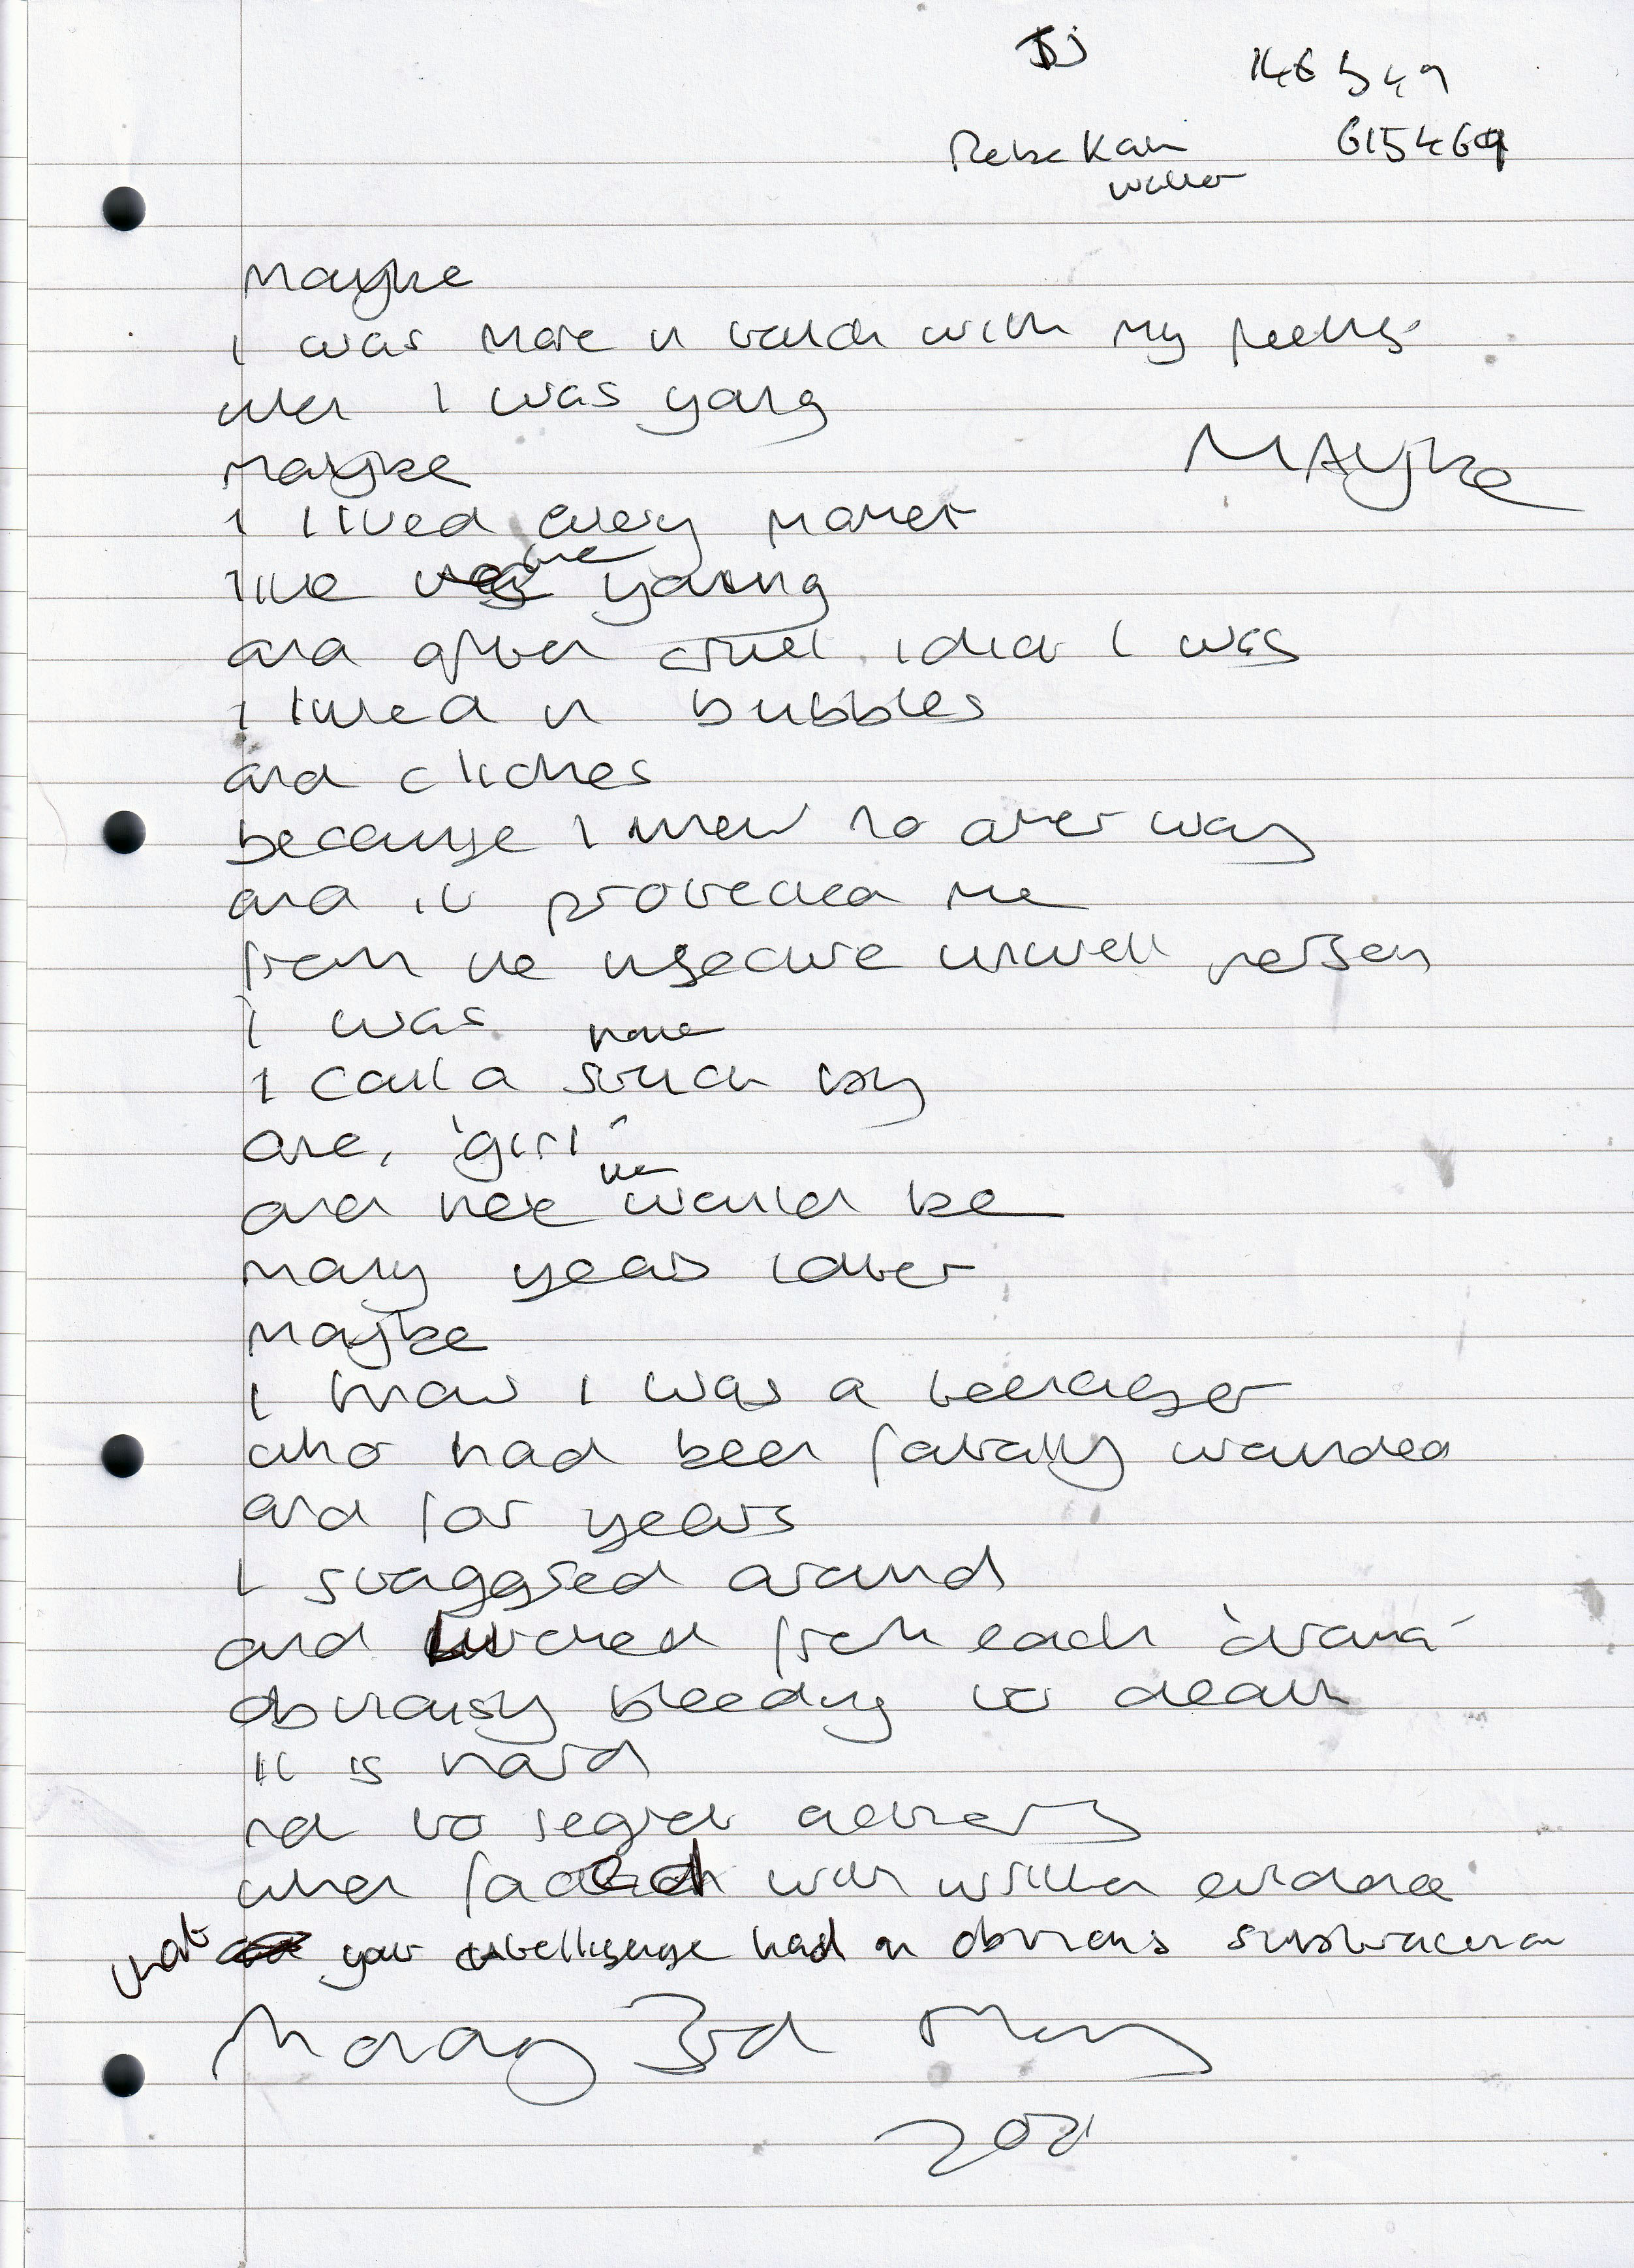 146549
Rebekah 615469
Waller
Maybe
I was more in touch with my feelings
when I was young
MAYBE
Maybe
I lived every moment
like the young
and often cruel idiot I was
I lived in bubbles
and cliches
because I knew no other way
and it protected me
from the insecure unwell person
I was
I could have
stuck by
one, 'girl'
and here we would be
many years later
maybe
I know I was a teenager
who had been fatally wounded
and for years
I staggered around
and lurched from each 'drama'
obviously bleeding to death
it is hard
not to regret
when faced with written evidence
that your intelligence had an obvious
Monday 3rd May
2021